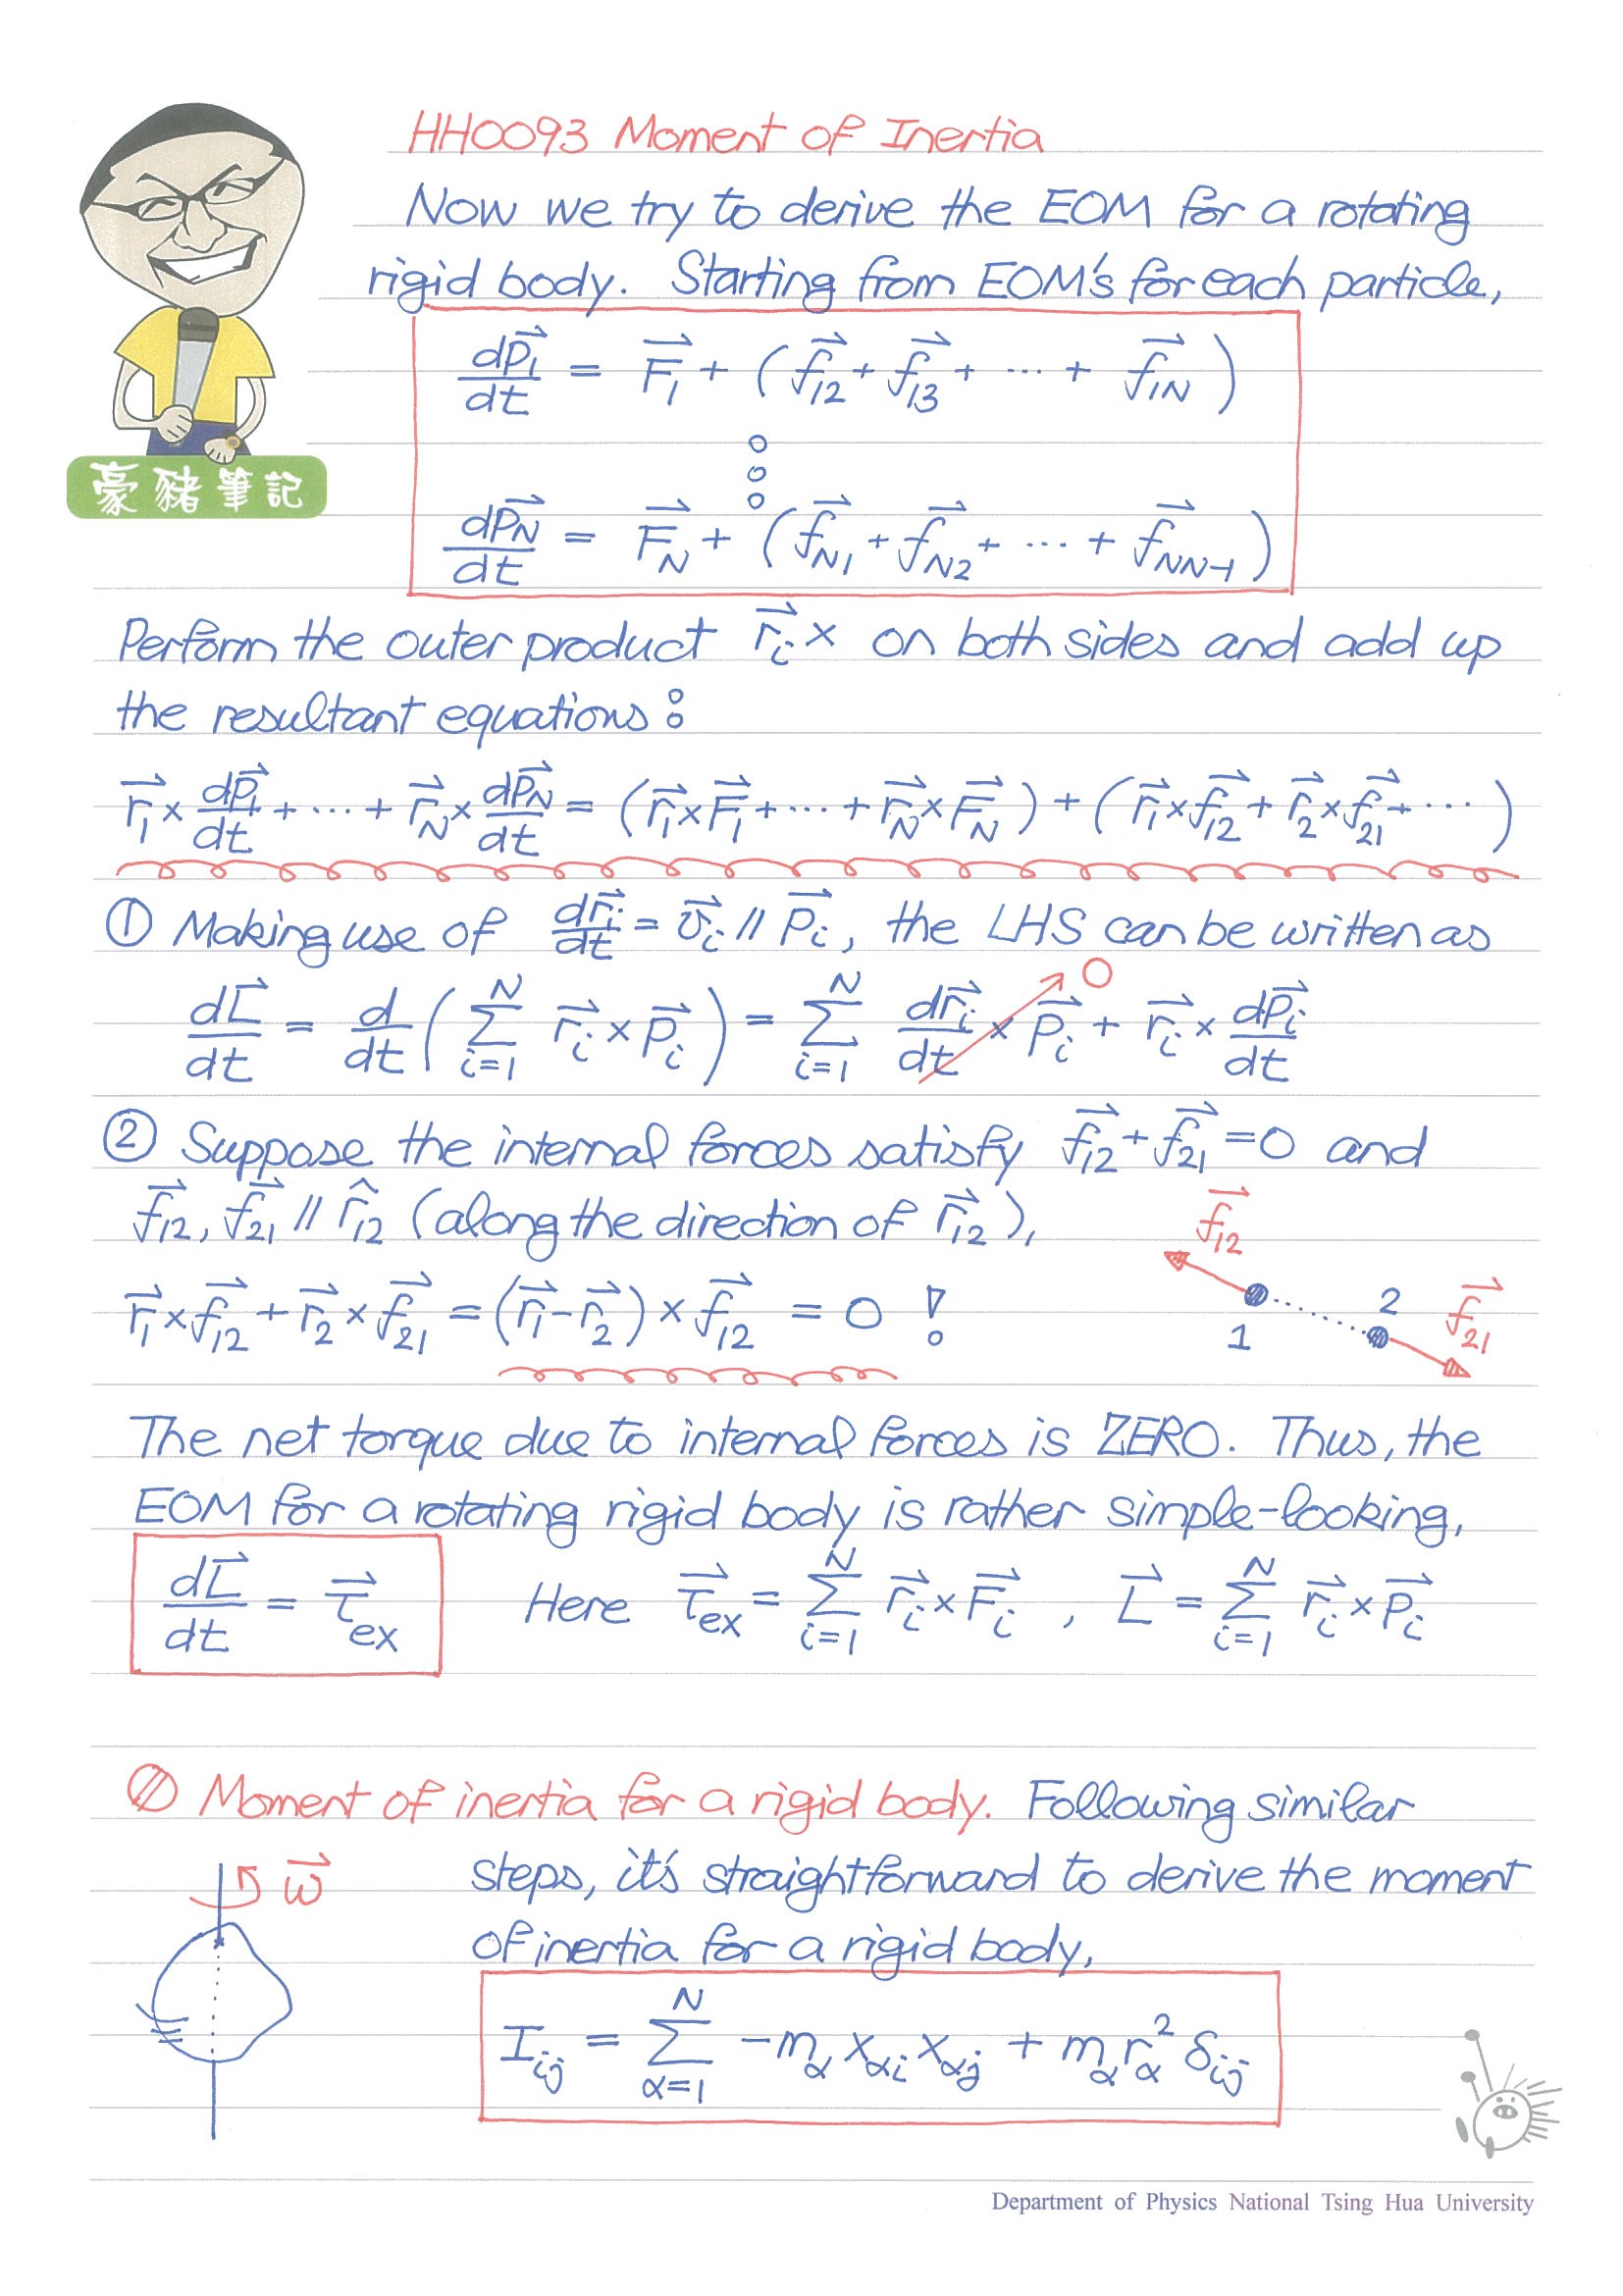 HH0093 Moment of Inertia
Now we try to derive the EOM for a rotating
rigid body. Starting from EOM's for each particle,
dp⃗₁/dt = F⃗₁ + (f⃗₁₂ + f⃗₁₃ + ⋯ + f⃗₁N)
dp⃗N/dt = F⃗N + (f⃗N1 + f⃗N2 + ⋯ + f⃗NN-1)
豪豬筆記
Perform the outer product r⃗ᵢ× on both sides and add up
the resultant equations:
r⃗₁×dp⃗₁/dt + ⋯ + r⃗N×dp⃗N/dt = (r⃗₁×F⃗₁ + ⋯ + r⃗N×F⃗N) + (r⃗₁×f⃗₁₂ + r⃗₂×f⃗₂₁ + ⋯)
① Making use of dr⃗ᵢ/dt = v⃗ᵢ // p⃗ᵢ, the LHS can be written as
dL⃗/dt = d/dt (∑ᵢ₌₁ᴺ r⃗ᵢ×p⃗ᵢ) = ∑ᵢ₌₁ᴺ dr⃗ᵢ/dt × p⃗ᵢ + r⃗ᵢ×dp⃗ᵢ/dt
0
② Suppose the internal forces satisfy f⃗₁₂ + f⃗₂₁ = 0 and
f⃗₁₂, f⃗₂₁ // r̂₁₂ (along the direction of r⃗₁₂),
r⃗₁×f⃗₁₂ + r⃗₂×f⃗₂₁ = (r⃗₁-r⃗₂)×f⃗₁₂ = 0 !
f⃗₁₂
1
2
f⃗₂₁
The net torque due to internal forces is ZERO. Thus, the
EOM for a rotating rigid body is rather simple-looking,
dL⃗/dt = τ⃗ex Here τ⃗ex = ∑ᵢ₌₁ᴺ r⃗ᵢ×F⃗ᵢ , L⃗ = ∑ᵢ₌₁ᴺ r⃗ᵢ×p⃗ᵢ
Moment of inertia for a rigid body. Following similar
steps, it's straightforward to derive the moment
of inertia for a rigid body,
ω⃗
Iij = ∑α=1ᴺ -mα xαi xαj + mα rα² δij
Department of Physics National Tsing Hua University